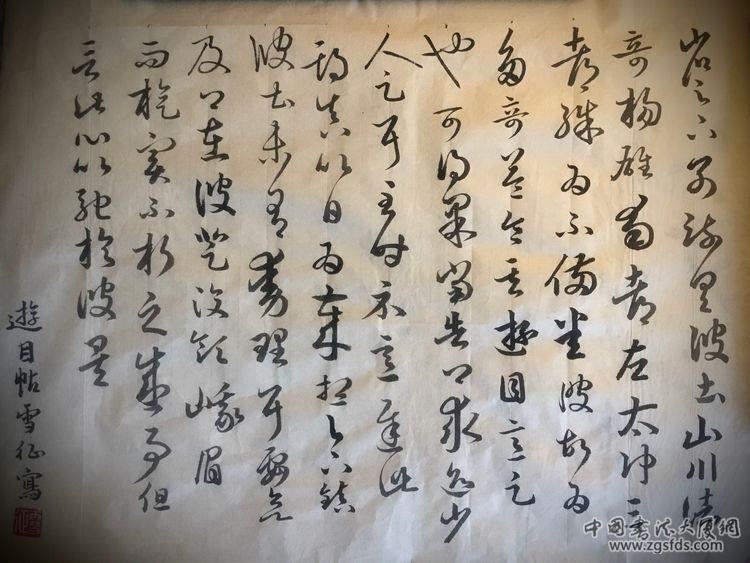 省足下別疏具彼土山川諸
奇揚雄蜀都左太沖三
都殊為不備悉彼故為
多奇益令其遊目意足
也可得果當告卿求迎少
人足耳至時示意遲此
期真以日為歲想足下鎮
彼土未有動理耳要欲
及卿在彼登汶領峨眉
而旋實不朽之盛事但
言此心以馳於彼矣
遊目帖雪征寫
中国书法大厦网
www.zgsfds.com